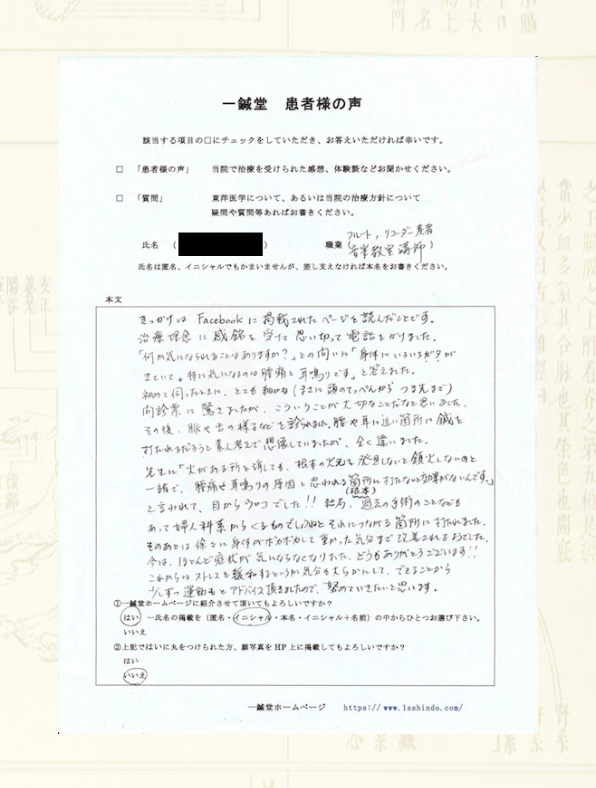 一鍼堂 患者様の声
該当する項目の□にチェックをしていただき、お答えいただければ幸いです。
□ 「患者様の声」 当院で治療を受けられた感想、体験談などお聞かせください。
□ 「質問」 東洋医学について、あるいは当院の治療方針について
疑問や質問等あればお書きください。
フルート、リコーダー奏者
氏名 ( ) 職業 (音楽教室講師)
氏名は匿名、イニシャルでもかまいませんが、差し支えなければ本名をお書きください。
本文
きっかけは Facebookに掲載されたページを読んだことです。
治療理念に感銘を受けて思い切って電話をかけました。
「何か気になられることはありますか?」との問いに「身体にいろいろガタが
きていて。特に気になるのは腰痛と耳鳴りです。」と答えました。
初めて伺ったときに、とても細かな(まさに頭のてっぺんからつま先まで)
問診票に驚きましたが、こういうことが大切なことだなと思いました。
その後、脈や舌の様子などを診られました。腰や耳に近い箇所に鍼を
打たれるだろうと素人考えで想像していたが、全く違いました。
先生に「火がある所を消しても、根本の火元を発見しないと鎮火しないのと
一緒で、腰痛や耳鳴りの原因と思われる箇所に打たないと効果がないんです。」
(根本)
と言われて、目からウロコでした!! 結局、過去の手術のことなども
あって婦人科系からくるものでしょうねとそれにつながる箇所に打たれました。
そのあとは徐々に身体がポカポカして重かった気分まで改善されるようでした。
今は、ほとんど症状が気にならなくなりました。どうもありがとうございます!!
これからはストレスを緩和するというか気分も大らかにして、できることから
少しずつ運動もとアドバイス頂きましたので、努めていきたいと思います。
①一鍼堂ホームページに紹介させて頂いてもよろしいですか?
はい …氏名の掲載を(匿名・イニシャル・本名・イニシャル+名前)の中からひとつお選び下さい。
いいえ
②上記ではいに丸をつけられた方、顔写真をHP上に掲載してもよろしいですか?
はい
いいえ
一鍼堂ホームページ https://www.1sshindo.com/